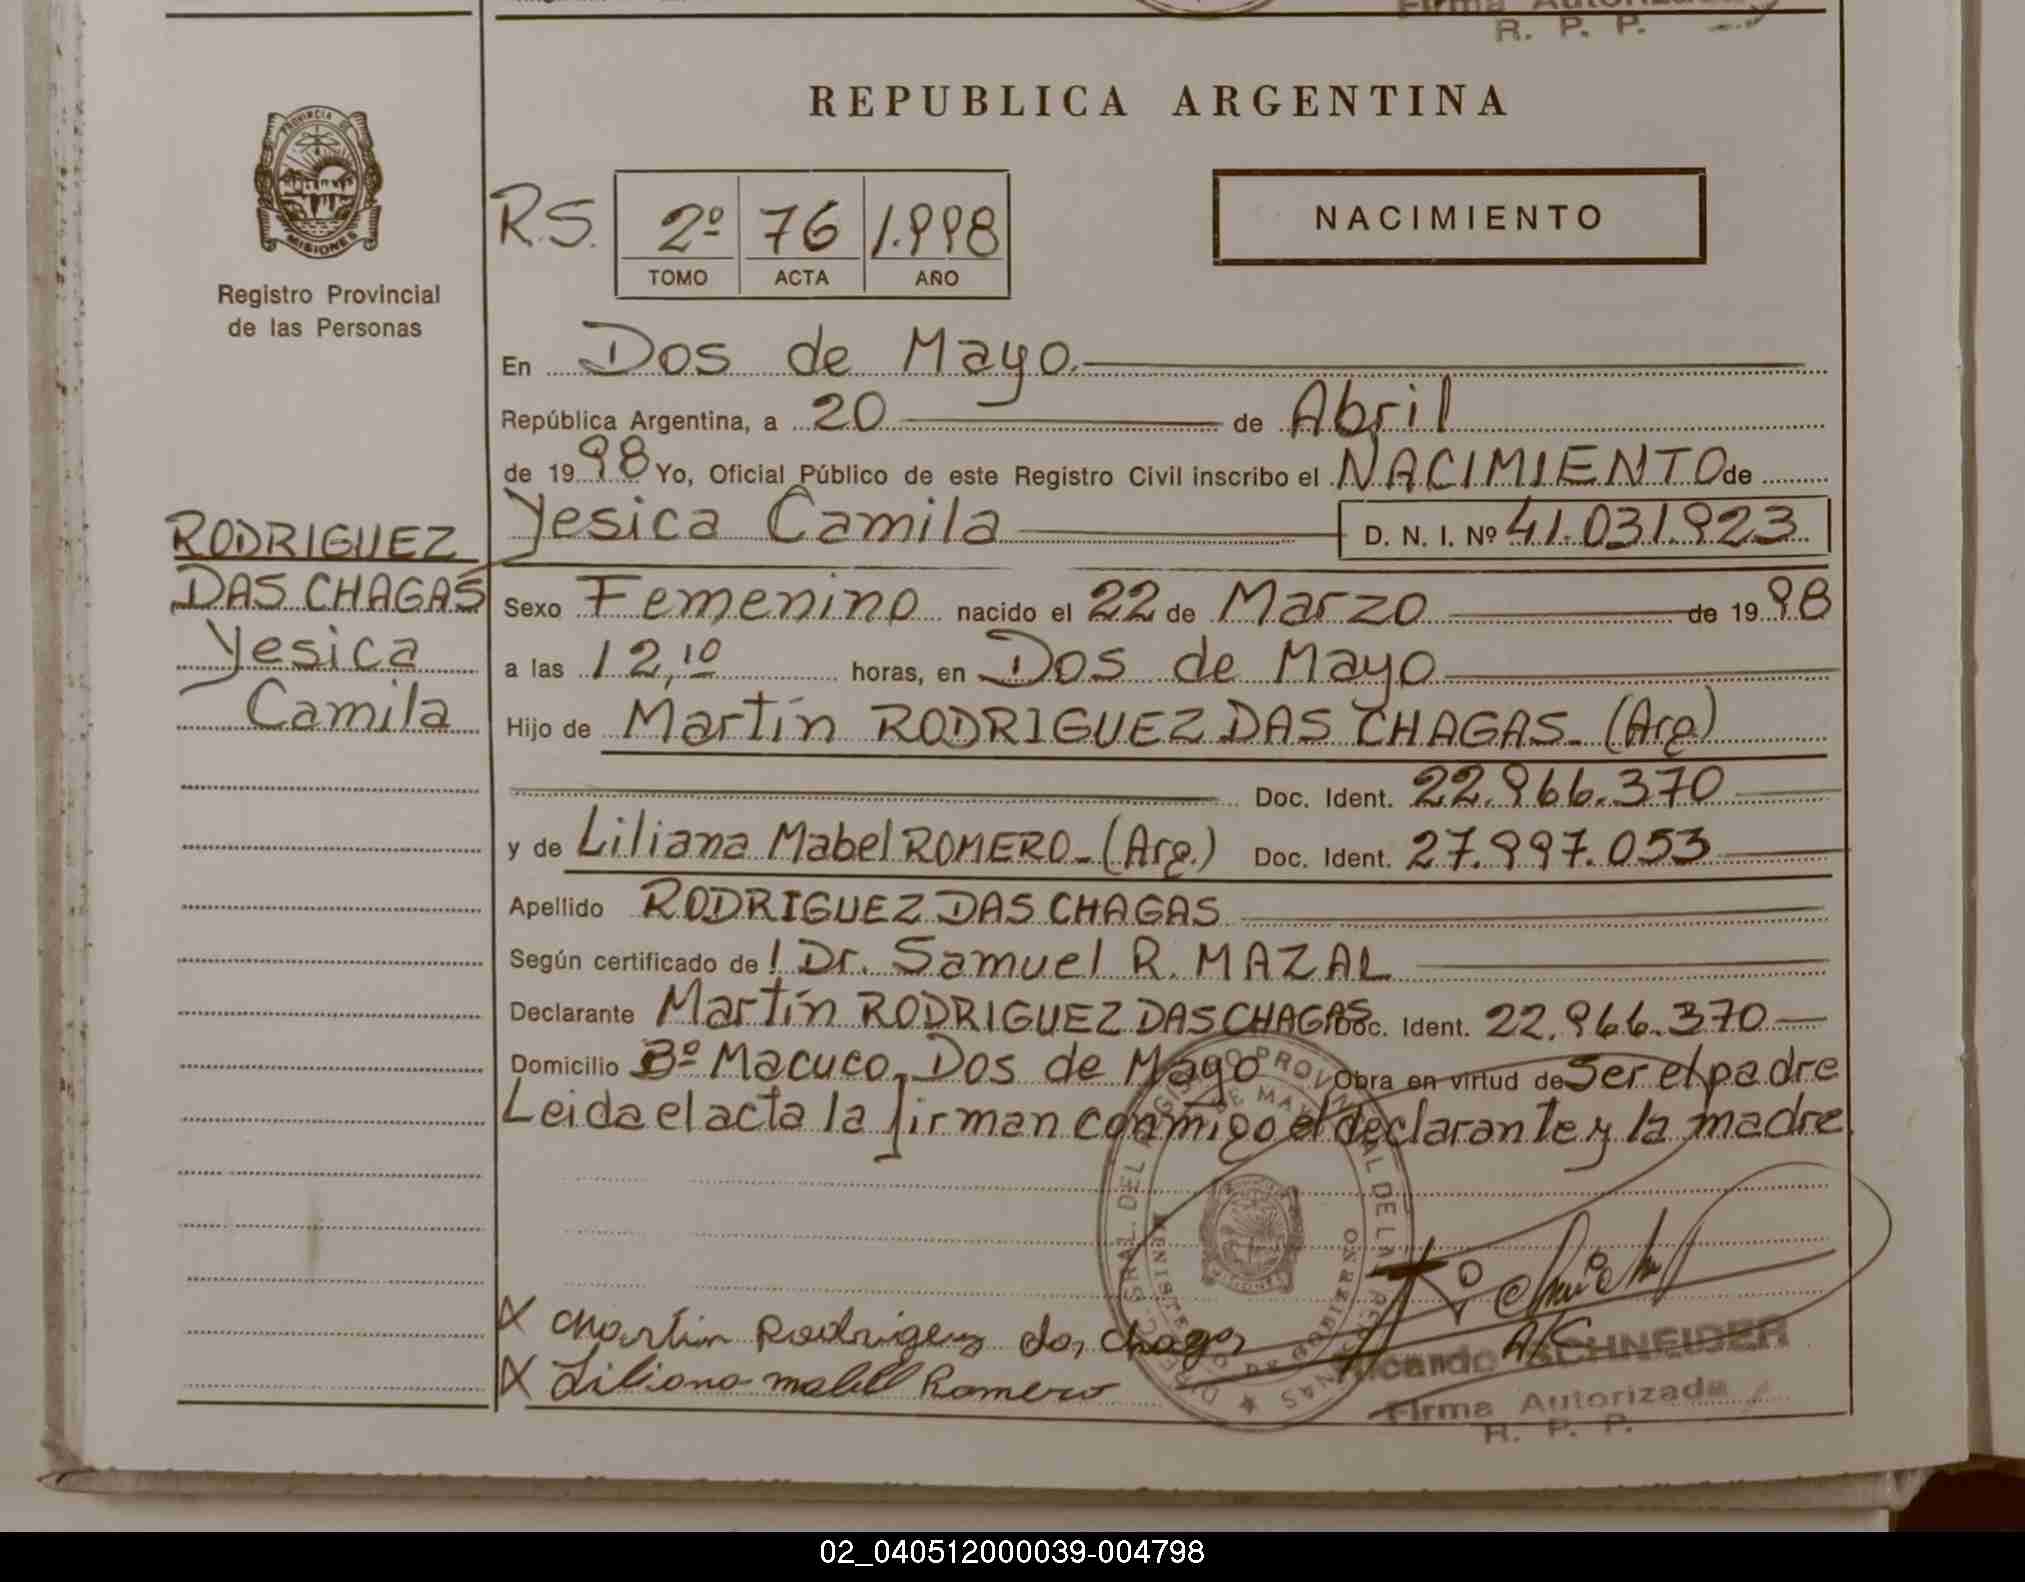 Firma Autorizada
R. P. P.
REPUBLICA ARGENTINA
PROVINCIA DE
MISIONES
Registro Provincial
de las Personas
R.S. 2º 76 1.998
TOMO ACTA AÑO
NACIMIENTO
En Dos de Mayo.
República Argentina, a 20 de Abril
de 1998 Yo, Oficial Público de este Registro Civil inscribo el NACIMIENTO de
RODRIGUEZ
DAS CHAGAS
Yesica
Camila
Yesica Camila D. N. I. Nº 41.031.923
Sexo Femenino nacido el 22 de Marzo de 1998
a las 12,10 horas, en Dos de Mayo
Hijo de Martín RODRIGUEZ DAS CHAGAS_ (Arg)
Doc. Ident. 22.966.370
y de Liliana Mabel ROMERO_ (Arg.) Doc. Ident. 27.997.053
Apellido RODRIGUEZ DAS CHAGAS
Según certificado de l Dr. Samuel R. MAZAL
Declarante Martín RODRIGUEZ DAS CHAGAS Doc. Ident. 22.966.370
Domicilio Bº Macuco, Dos de Mayo Obra en virtud de Ser el padre
Leida el acta la firman conmigo el declarante y la madre
X Martin Rodrigez das chagas
X Liliana mabel Romero
A/C
Ricardo SCHNEIDER
Firma Autorizada
R. P. P.
02_040512000039-004798